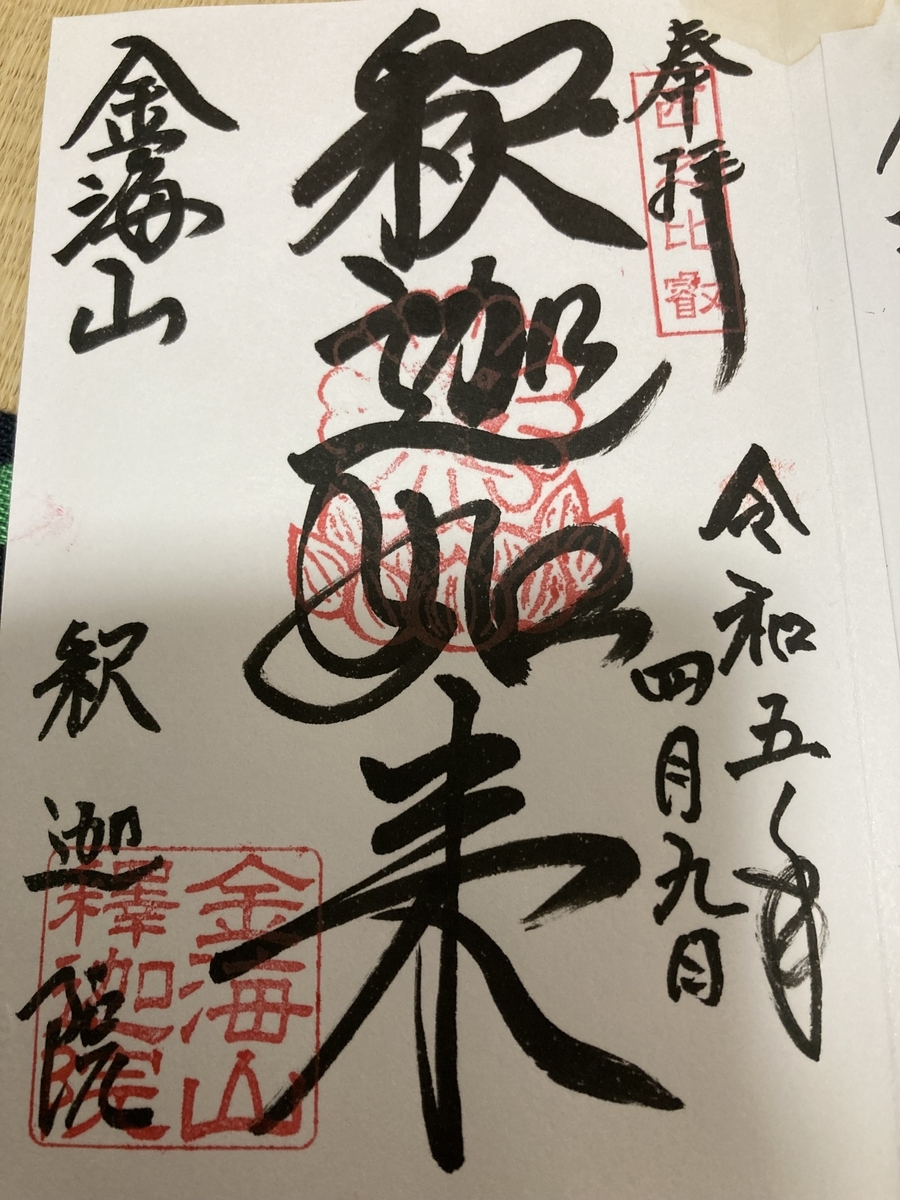 奉拝
西之比叡
令和五年
四月九日
釈迦如来
金海山
釈迦院
金海山
釋迦院